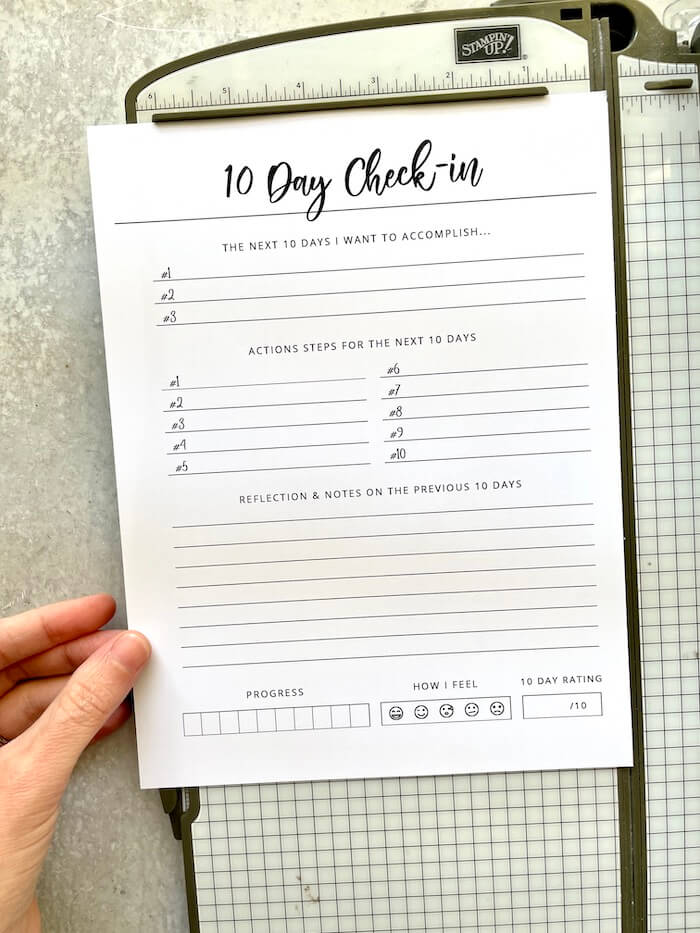 STAMPIN' UP!
6 5 4 3 2 1
1
10 Day Check-in
THE NEXT 10 DAYS I WANT TO ACCOMPLISH...
#1
#2
#3
ACTIONS STEPS FOR THE NEXT 10 DAYS
#1
#2
#3
#4
#5
#6
#7
#8
#9
#10
REFLECTION & NOTES ON THE PREVIOUS 10 DAYS
PROGRESS
HOW I FEEL
10 DAY RATING
/10